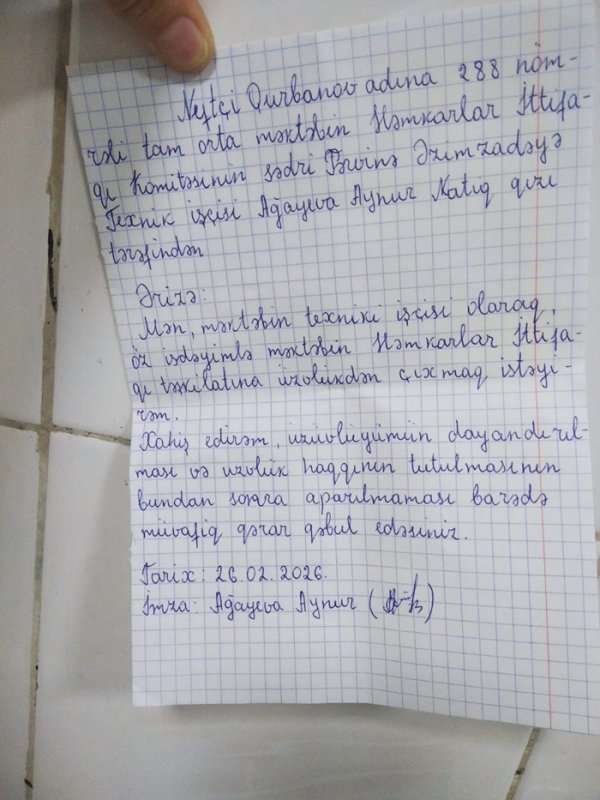 Neftçi Qurbanov adına 288 nöm-
rəli tam orta məktəbin Həmkarlar İttifa-
qı Komitəsinin sədri Pərvinə Əzimzadəyə
Texnik işçisi Ağayeva Aynur Natiq qızı
tərəfindən
Ərizə:
Mən, məktəbin texniki işçisi olaraq,
öz istəyimlə məktəbin Həmkarlar İttifa-
qı təşkilatına üzvlükdən çıxmaq istəyi-
rəm.
Xahiş edirəm, üzvlüyümün dayandırıl-
ması və üzvlük haqqının tutulmasının
bundan sonra aparılmaması barədə
müvafiq qərar qəbul edəsiniz.
Tarix: 26.02.2026.
İmza: Ağayeva Aynur